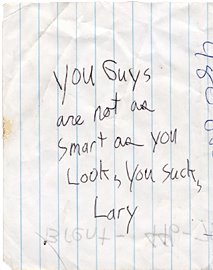 you Guys
are not as
smart as you
Look, you suck,
Lary